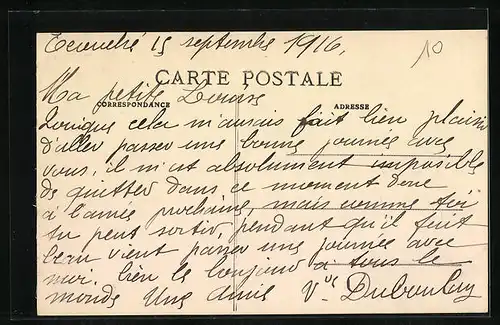 Ecouché 15 septembre 1916,
10
CARTE POSTALE
CORRESPONDANCE
ADRESSE
Ma petite Louise
Lorsque cela m'aurais fait bien plaisir
d'aller passer une bonne journée avec
vous, il m'est absolument imposible
de quitter dans ce moment donc
à l'année prochaine, mais comme toi
tu peut sortir, pendant qu'il fait
beau vient passer une journée avec
moi. bien le bonjour a tous le
monde Une amie Vve